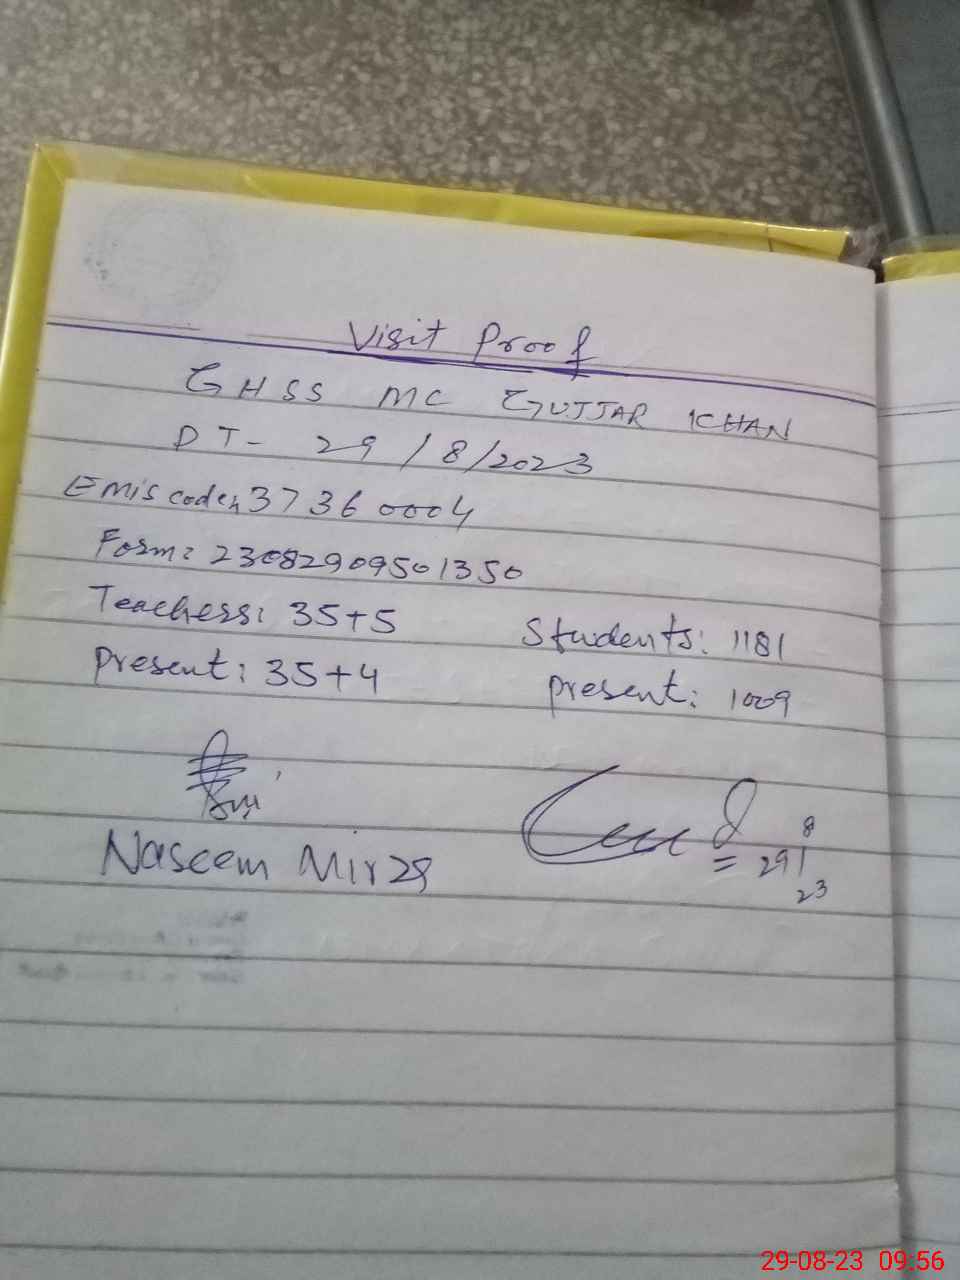 Visit Proof
GHSS MC GUJJAR KHAN
DT- 29/8/2023
Emis code: 37360004
Form: 23082909501350
Teachers: 35+5 Students: 1181
Present: 35+4 present: 1009
Naseem Mirza
29/8/23
29-08-23 09:56